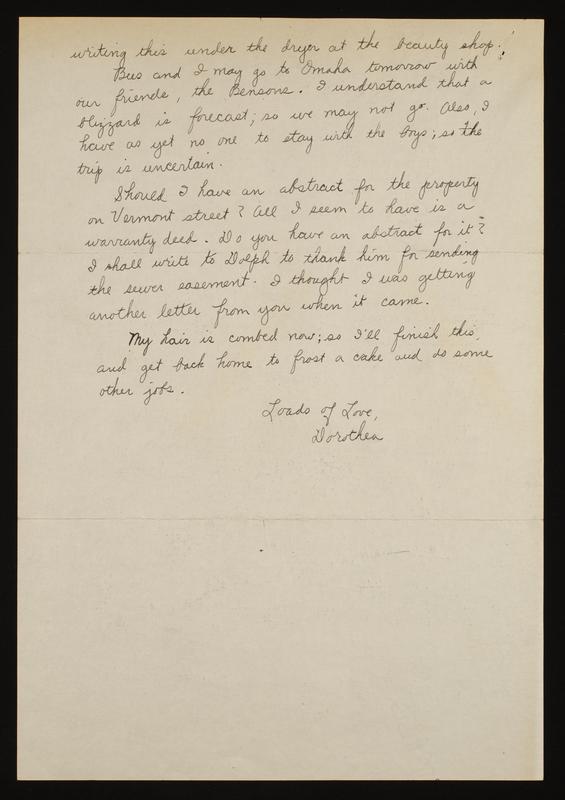 writing this under the dryer at the beauty shop!
Bus and I may go to Omaha tomorrow with
our friends, the Bensons. I understand that a
blizzard is forecast; so we may not go. Also, I
have as yet no one to stay with the boys; so the
trip is uncertain.
Should I have an abstract for the property
on Vermont street? All I seem to have is a
warranty deed. Do you have an abstract for it?
I shall write to Dolph to thank him for sending
the sewer easement. I thought I was getting
another letter from you when it came.
My hair is combed now; so I'll finish this,
and get back home to frost a cake and do some
other jobs.
Loads of Love,
Dorothea